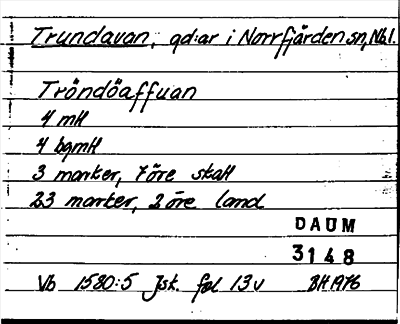 Trundavan, gd:ar i Norrfjärden sn, Nbl.
Tröndöaffuan
4 mtl
4 bgmtl
3 marker, 7 öre skatt
23 marker, 2 öre land
DAUM
3148
Vb 1580:5 Jsk. fol 13v BH 1976